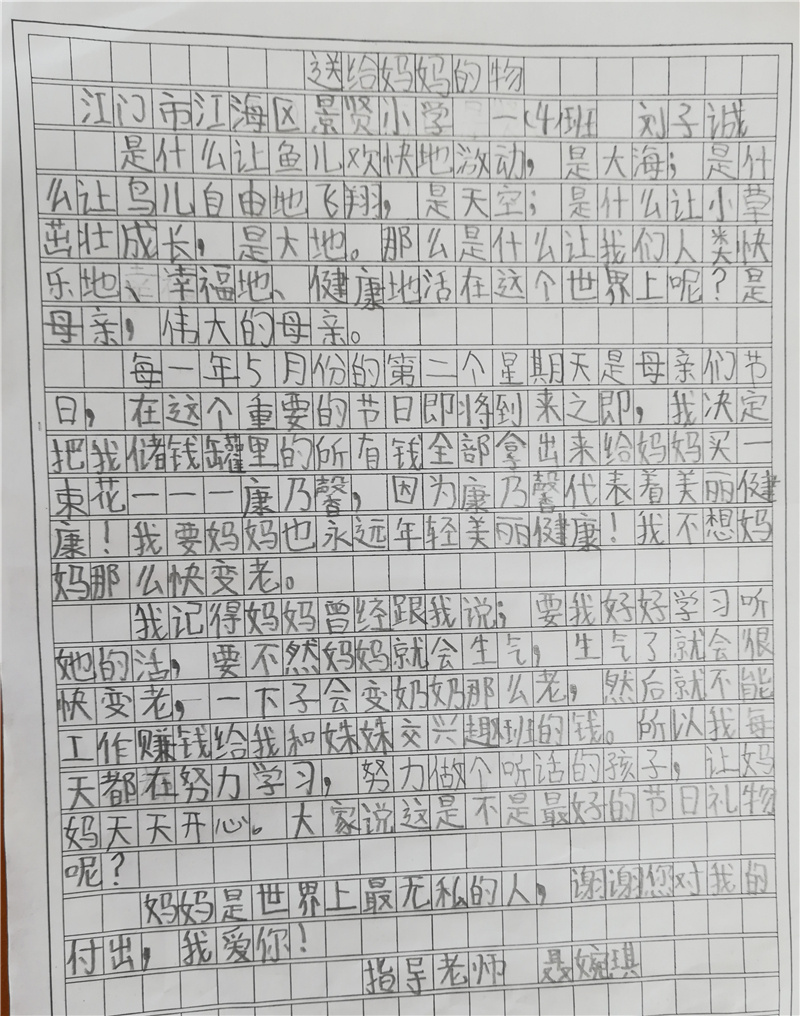 送给妈妈的物
江门市江海区景贤小学 一(4班 刘子诚
是什么让鱼儿欢快地激动，是大海；是什
么让鸟儿自由地飞翔，是天空；是什么让小草
茁壮成长，是大地。那么是什么让我们人类快
乐地、幸福地、健康地活在这个世界上呢？是
母亲，伟大的母亲。
每一年5月份的第二个星期天是母亲们节
日，在这个重要的节日即将到来之即，我决定
把我储钱罐里的所有钱全部拿出来给妈妈买一
束花一一一康乃馨，因为康乃馨代表着美丽健
康！我要妈妈也永远年轻美丽健康！我不想妈
妈那么快变老。
我记得妈妈曾经跟我说；要我好好学习听
她的活，要不然妈妈就会生气，生气了就会很
快变老，一下子会变奶奶那么老，然后就不能
工作赚钱给我和妹妹交兴趣班的钱。所以我每
天都在努力学习，努力做个听话的孩子，让妈
妈天天开心。大家说这是不是最好的节日礼物
呢？
妈妈是世界上最无私的人，谢谢您对我的
付出，我爱你！
指导老师 聂婉琪